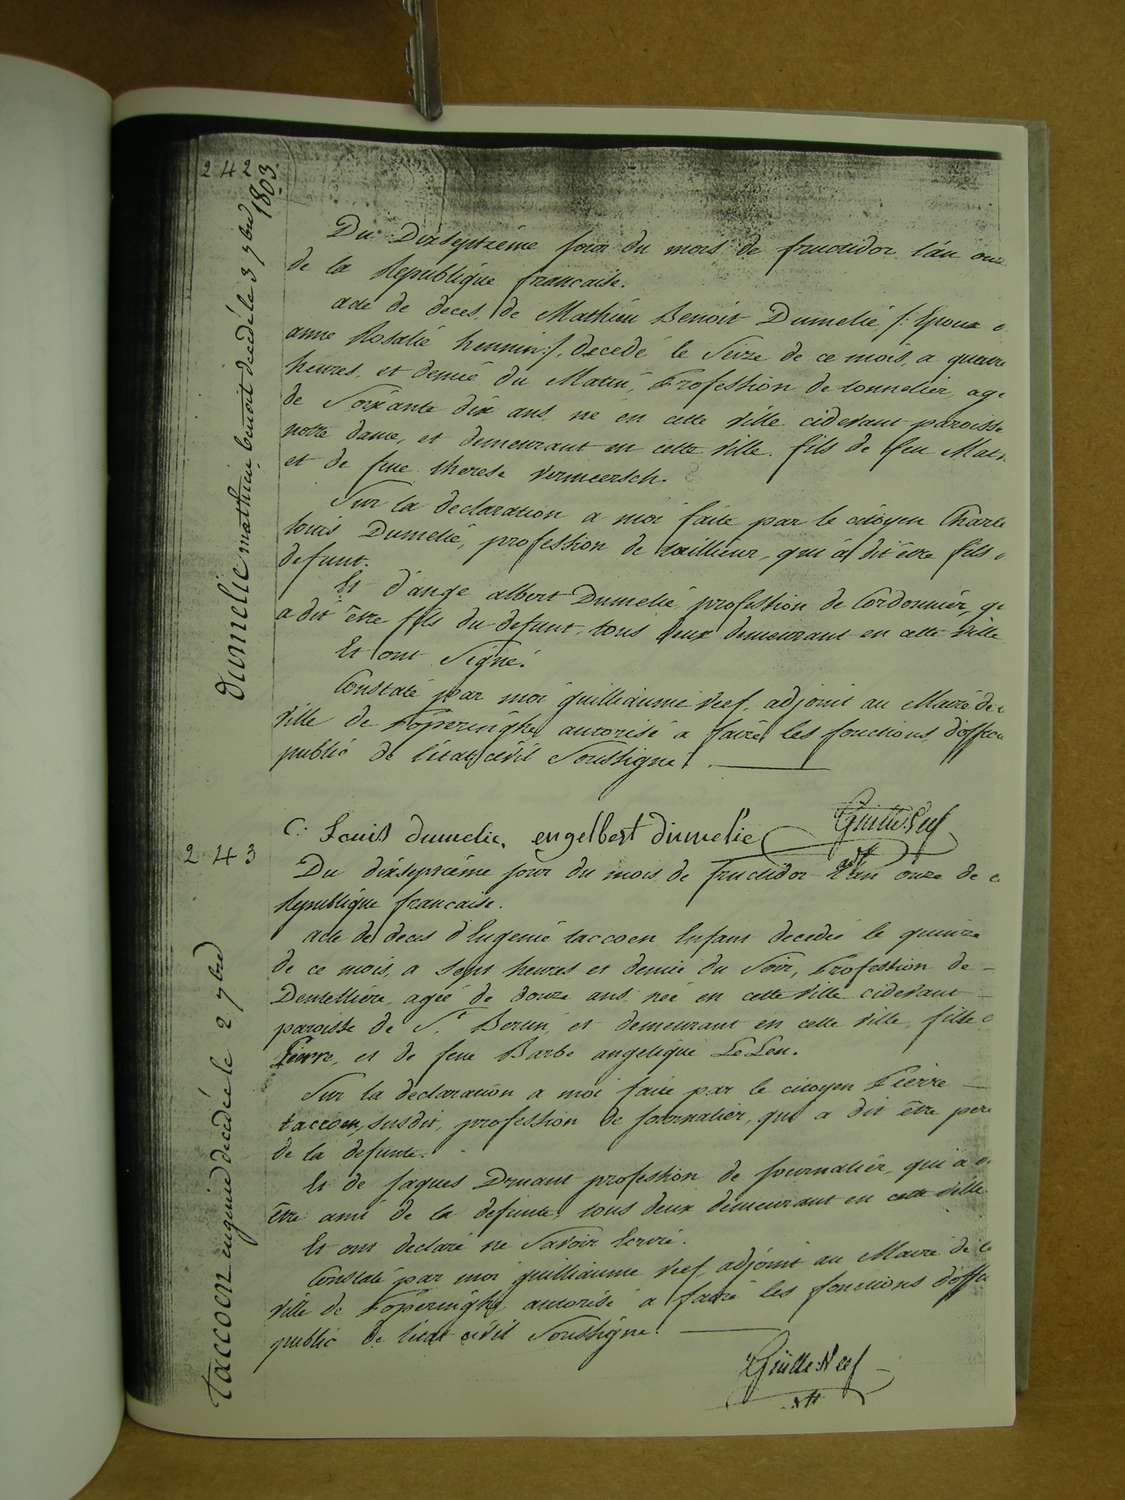 242
1803.
Dumelie mathieu benoit decedé le 3 7bre
Du Dixseptième jour du mois de fructidor l'an onz
de la Republique francaise.
acte de deces, de Mathieu Benoit Dumelié /: Epoux
anne Rosalie hennin :/, decedé le Seize de ce mois, a quatre
heures, et demie du Matin, Profession de tonnelier, agé
de Soixante dix ans, né en cette ville cidevant paroisse
notre dame, et demeurant en cette ville. fils de feu Mat
et de feue therese vermeersch.
Sur la declaration a moi faite par le citoyen Charle
louis Dumelié, profession de taillieur, qui à dit être fils
defunt.
Et d'ange albert Dumelié profession de Cordonnier, q
a dit être fils du defunt, tous deux demeurant en cette ville
Et ont Signé.
Constaté par moi guilliaume Neef, adjoint au Maire de
ville de Poperinghe autorisé a faire les fonctions d'offici
public de l'etat civil Soussigné.
C: Louis dumelie, engelbert dumelie Guille Neef
243
taccoen eugenie decedée le 2 7bre
Du dixseptième jour du mois de fructidor L'an onze de
Republique francaise.
acte de deces d'Eugenie taccoen Enfant decedée le quinze
de ce mois, a Sept heures et demie du Soir, Profession de
Dentellière, agée de douze ans, née en cette ville cidevant
paroisse de St. Bertin, et demeurant en cette ville, fille
Pierre, et de feue Barbe angelique LeLeu.
Sur la declaration a moi faite par le citoyen Pierre
taccoen, susdit, profession de Journalier, qui a dit être pere
de la defunte.
Et de Jaques Druant profession de Journalier, qui a
être ami de la defunte, tous deux demeurant en cette ville
Et ont declaré ne Savoir Ecrire.
Constaté par moi guilliaume Neef, adjoint au Maire de
ville de Poperinghe, autorisé a faire les fonctions d'offi
public de l'etat civil Soussigné.
Guille Neef